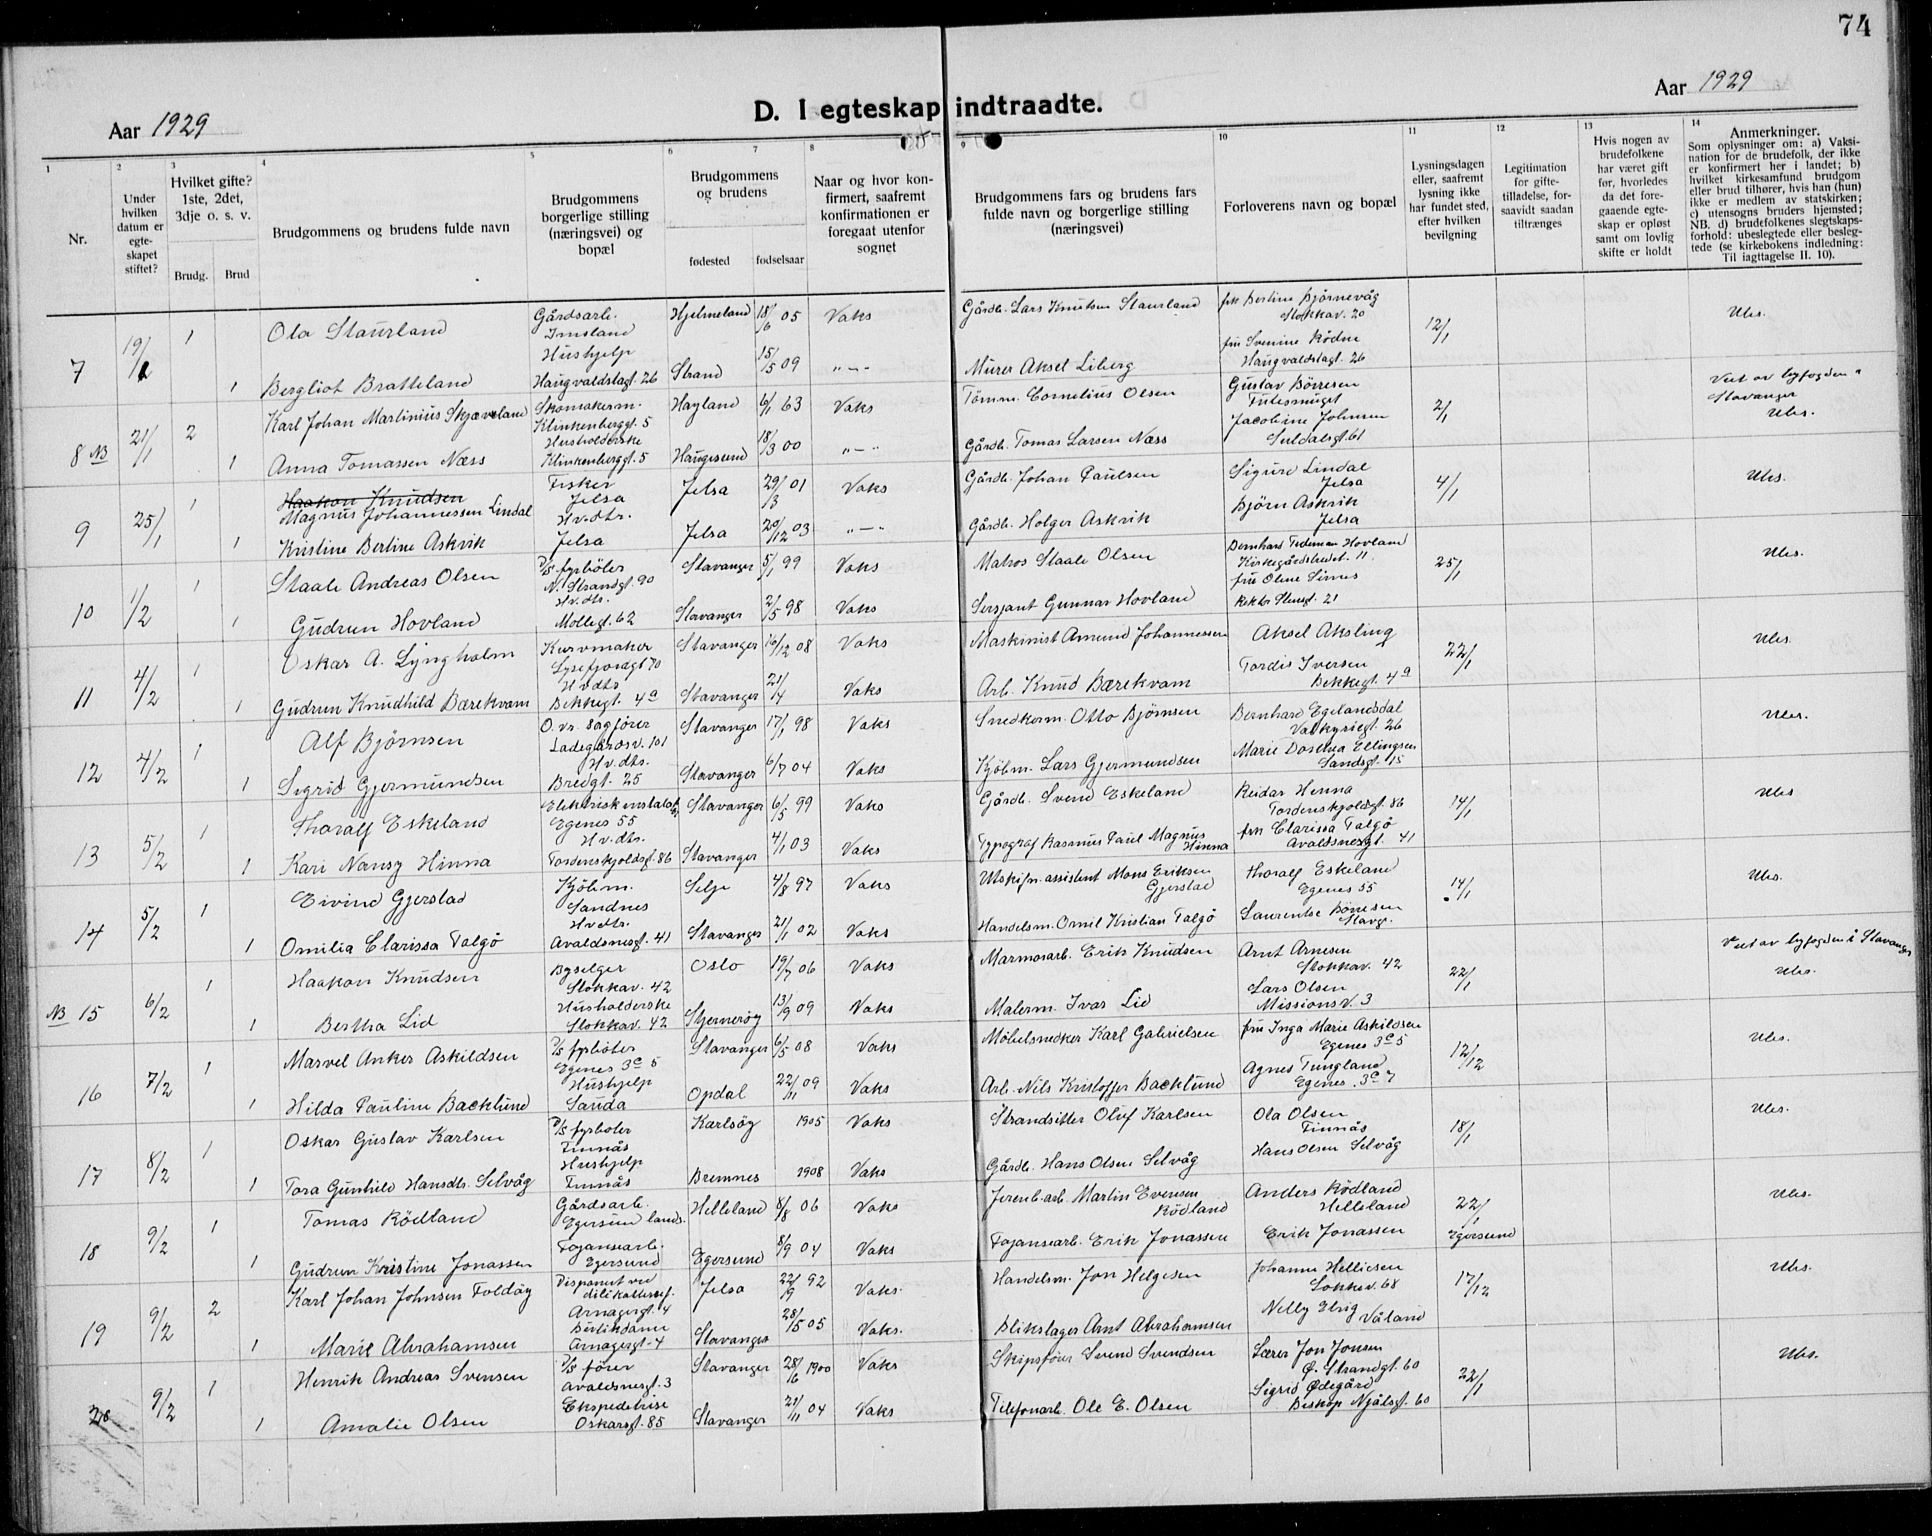 74
Aar 1929
D. I egteskap indtraadte.
Aar 1929
1 2 3 4 5 6 7 8 9 10 11 12 13 14
Nr.
Under hvilken datum er egteskapet stiftet?
Hvilket gifte? 1ste, 2det, 3dje o. s. v.
Brudg. Brud
Brudgommens og brudens fulde navn
Brudgommens borgerlige stilling (næringsvei) og bopæl
Brudgommens og brudens
fødested fødselsaar
Naar og hvor konfirmert, saafremt konfirmationen er foregaat utenfor sognet
Brudgommens fars og brudens fars fulde navn og borgerlige stilling (næringsvei)
Forloverens navn og bopæl
Lysningsdagen eller, saafremt lysning ikke har fundet sted, efter hvilken bevilgning
Legitimation for giftetilladelse, forsaavidt saadan tiltrænges
Hvis nogen av brudefolkene har været gift før, hvorledes da det foregaaende egteskap er opløst samt om lovlig skifte er holdt
Anmerkninger.
Som oplysninger om: a) Vaksination for de brudefolk, der ikke er konfirmert her i landet; b) hvilket kirkesamfund brudgom eller brud tilhører, hvis han (hun) ikke er medlem av statskirken; c) utensogns bruders hjemsted; NB. d) brudefolkenes slegtskapsforhold: ubeslegtede eller beslegtede (se kirkebokens indledning: Til iagttagelse II. 10).
7 19/1 1 Ola Staurland Gårdsarb. Imsland Hjelmeland 18/6 05 Vaks Gårdb. Lars Knutsen Staurland frk Bertine Bjørnevåg Stokkav. 20 12/1 Ubs.
1 Bergliot Bratteland Hushjelp Haugvaldstagt. 26 Strand 15/5 09 „—„ Murer Aksel Liberg fru Svenine Rödne Haugvaldstagt. 26
8 NB 21/1 2 Karl Johan Martinius Skjæveland Skomakerm. Klinkenberggt. 5 Høyland 6/1 63 Vaks Tömm. Cornelius Olsen Gustav Börresen Futesmuget 2/1 Viet av byfogden i Stavanger Ubs.
1 Anna Tomassen Næss Husholderske Klinkenberggt. 5 Haugesund 18/3 00 „—„ Gårdb. Tomas Larsen Næss Jacobine Johnsen Suldalsgt. 61
9 25/1 1 Haakon Knudsen
Magnus Johannessen Lindal Fisker Jelsa Jelsa 29/3 01 Vaks Gårdb. Johan Paulsen Sigurd Lindal Jelsa 4/1 Ubs.
1 Kristine Bertine Askvik Hv.dtr. Jelsa Jelsa 20/12 03 „—„ Gårdb. Holger Askvik Bjørn Askvik Jelsa
10 1/2 1 Staale Andreas Olsen D/S fyrböter N. Strandgt. 90 Stavanger 5/1 99 Vaks Matros Staale Olsen Bernhard Tedeman Hovland Kirkegårdsbedet. 11 25/1 Ubs.
1 Gudrun Hovland Hv.dtr. Möllegt. 62 Stavanger 2/5 98 Vaks Sersjant Gunnar Hovland fru Olene Sirnes 21
11 4/2 1 Oskar A. Lyngholm Kurvmaker Lysefjordgt 70 Stavanger 16/12 08 Vaks Maskinist Amund Johannessen Aksel Aksling 22/1 Ubs.
1 Gudrun Knudhild Bærekvam Hv dtr Bekkegt. 4 a Stavanger 21/ 14 Vaks Arb. Knud Bærekvam Tordis Iversen Bekkegt. 4 a
12 4/2 1 Alf Bjørnsen O. r. sagfører Ladegårdsv. 101 Stavanger 17/1 98 Vaks Snedkerm. Otto Bjørnsen Bernhard Egelandsdal Valkyriegt. 26 Ubs.
1 Sigrid Gjermundsen Hv.dtr. Bredgt. 25 Stavanger 6/7 04 Vaks Kjöbm. Lars Gjermundsen Marie Dosthea Ellingsen Sandsgt. 15
13 5/2 1 Thoralf Eskeland Egenes 55 Stavanger 6/5 99 Vaks Gårdb. Svend Eskeland Reidar Hinna Tordenskjoldsgt. 86 14/1 Ubs
1 Kari Nansy Hinna Hv.dtr. Tordenskjoldsgt. 86 Stavanger 4/1 03 Vaks Typograf Rasmus Paul Magnus Hinna frk Clarissa Talgö Avaldsnesgt. 41
14 5/2 1 Eivind Gjerstad Kjöbm. Sandnes Selje 4/8 97 Vaks Utskifn. assistent Mons Eriksen Gjerstad Thoralf Eskeland Egenes 55 14/1 Ubs.
1 Omilia Clarissa Talgö Hv dtr. Avaldsnesgt. 41 Stavanger 21/1 02 Vaks Handelsm. Omil Kristian Talgö Laurentse Börresen Stavgr.
NB 15 6/2 1 Haakon Knudsen Byselger Stokkav. 42 Oslo 19/7 06 Vaks Marmorarb. Erik Knudsen Arnt Arnesen Stokkav. 42 22/1 Viet av byfogden i Stavanger Ubs.
1 Bertha Lid Husholderske Stokkav. 42 Stjernerøy 13/9 09 Vaks Malerm. Ivar Lid Lars Olsen Missionsv. 3
16 7/2 1 Marvel Anker Askildsen D/S fyrböter Egenes 3 c 5 Stavanger 6/5 08 Vaks Möbelsnedker Karl Gabrielsen fru Inga Marie Askildsen Egenes 3 c 5 12/12 Ubs.
1 Hilda Pauline Backlund Hushjelp Sauda Opdal 22/11 09 Vaks Arb. Nils Kristoffer Backlund Agnes Tungland Egenes 3 c 7
17 8/2 1 Oskar Gustav Karlsen D/S fyrböter Finnås Karlsöy 1905 Vaks Strandsitter Oluf Karlsen Ola Olsen Finnås 18/1 Ubs.
1 Tora Gunhild Hansdtr. Selvåg Hushjelp Finnås Bremnes 1908 Vaks Gårdb. Hans Olsen Selvåg Hans Olsen Selvåg
18 9/2 1 Tomas Rödland Gårdsarb. Egersund lands. Helleland 8/8 06 Vaks Jernb.arb. Martin Evensen Rödland Anders Rödland Helleland 22/1 Egersund Ubs.
1 Gudrun Kristine Jonassen Fajansearb. Egersund Egersund 8/9 04 Vaks Fajansearb. Erik Jonassen Erik Jonassen
19 9/2 2 Karl Johan Johnsen Foldöy Disponent ved Arnagergt. 4 Jelsa 22/9 92 Vaks. Handelsm. Jon Helgesen Johanne Helliesen Sokkev. 68 17/12 Ubs.
1 Marie Abrahamsen Arnagergt. 4 Stavanger 05 Vaks. Blikslager Arnt Abrahamsen Nelly Elvig Våland
9/2 1 Henrik Andreas Svensen D/S förer Avaldsnesgt. 3 Stavanger 28/6 1900 Vaks Skipsfører Svend Svendsen Lærer Jon Jonsen Ø. Strandgt. 60 22/1 Ubs.
1 Amalie Olsen Ekspeditrise Oskarsgt. 85 Stavanger 21/11 04 Vaks Telefonarb. Ole E. Olsen Sigrid Ødegård Biskop Njålsgt. 60